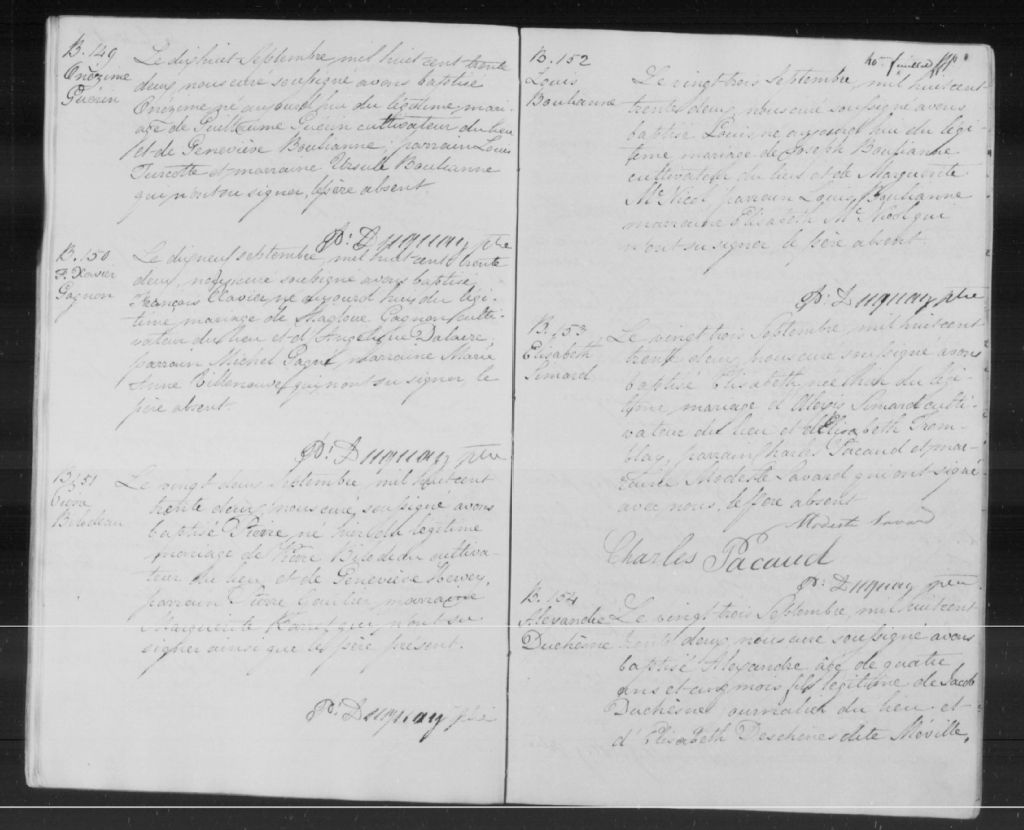 B. 149
Onézime
Guérin
Le dix huit Septembre, mil huit cent trente
deux, nous curé soussigné avons baptisé
Onézeme né aujourd'hui du légitime mari-
age de Guillaume Guérin cultivateur du lieu
et de Geneviève Boulianne; parrain Louis
Turcotte et marraine Ursule Boulianne
qui n'ont su signer, le père absent.
Pr. Duguay ptre
B. 150
F. Xavier
Gagnon
Le dix neuf septembre, mil huit cent trente
deux, nous curé soussigné avons baptisé
François Xavier, né aujourd'hui du légi-
time mariage de Magloire Gagnon culti-
vateur du lieu et d'Angélique Dalaire;
parrain Michel Gagné, marraine Marie
Anne Villeneuve qui n'ont su signer, le
père absent.
Pr. Duguay ptre
B. 151
Pierre
Bilodeau
Le vingt deux Septembre, mil huit cent
trente deux, nous curé, soussigné avons
baptisé Pierre, né hier du légitime
mariage de Pierre Bilodeau cultiva-
teur du lieu et de Geneviève Hervey,
parrain Pierre Gaultier marraine
Marguerite qui n'ont su
signer ainsi que le père présent.
Pr. Duguay ptre
B. 152
Louis
Boulianne
feuillet
Le vingt trois Septembre, mil huit cent
trente deux, nous curé soussigné avons
baptisé Louis, né aujourd'hui du légi-
time mariage de Joseph Boulianne
cultivateur du lieu et de Marguerite
Mc Nicol parrain Louis Boulianne
marraine Elisabeth Mc Nicol qui
n'ont su signer, le père absent.
Pr. Duguay ptre
B. 153
Elisabeth
Simard
Le vingt trois Septembre, mil huit cent
trente deux, nous curé soussigné avons
baptisé Elisabeth, née hier du légi-
time mariage d'Alexis Simard culti-
vateur du lieu et d'Elisabeth Trem-
blay, parrain Charles Pacaud et mar-
raine Modeste Savard qui ont signé
avec nous, le père absent
Modeste Savard
Charles Pacaud
Pr. Duguay ptre
B. 154
Alexandre
Duchêsne
Le vingt trois Septembre, mil huit cent
trente deux, nous curé soussigné avons
baptisé Alexandre âgé de quatre
ans et cinq mois fils légitime de Jacob
Duchêsne journalier du lieu et
d'Elisabeth Deschenes dite Méville,